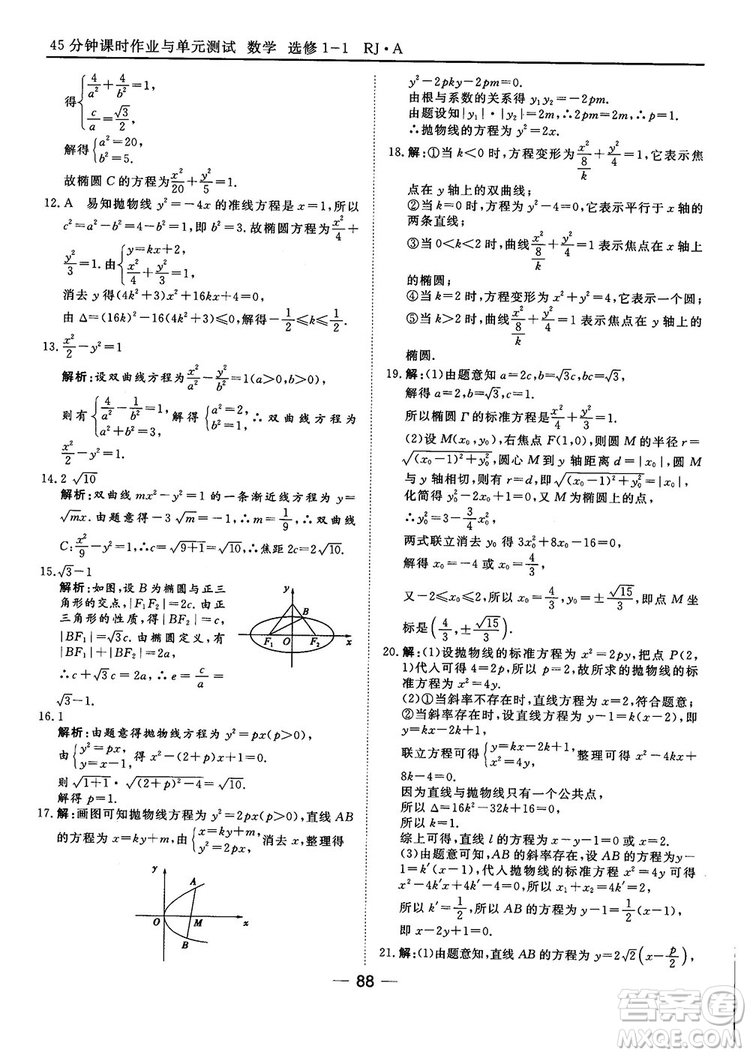 45分钟课时作业与单元测试 数学 选修1-1 RJ·A
得{4/a²+4/b²=1, c/a=√3/2.
解得{a²=20, b²=5.
故椭圆C的方程为x²/20+y²/5=1.
12.A 易知抛物线y²=-4x的准线方程是x=1,所以
c²=a²-b²=4-b²=1,即b²=3.故椭圆方程为x²/4+
y²/3=1.由{y=kx+2, x²/4+y²/3=1,
消去y得(4k²+3)x²+16kx+4=0,
由Δ=(16k)²-16(4k²+3)≤0,解得-1/2≤k≤1/2.
13.x²/2-y²=1
解析:设双曲线方程为x²/a²-y²/b²=1(a>0,b>0),
则有{4/a²-1/b²=1, a²+b²=3.解得{a²=2, b²=1.∴双曲线方程为
x²/2-y²=1.
14.2√10
解析:双曲线mx²-y²=1的一条渐近线方程为y=
√mx.由题意得-3√m=-1,∴m=1/9.∴双曲线
C:x²/9-y²=1.∴c=√(9+1)=√10,∴焦距2c=2√10.
15.√3-1
解析:如图,设B为椭圆与正三
角形的交点,|F₁F₂|=2c.由正
三角形的性质得|BF₂|=c,
|BF₁|=√3c.由椭圆定义,有
|BF₁|+|BF₂|=2a.
∴c+√3c=2a.∴e=c/a=
√3-1.
y
B
F₁
O
F₂
x
16.1
解析:由题意得抛物线方程为y²=2px(p>0),
由{y²=2px, y=-x+1整理得x²-(2+p)x+1=0.
则√(1+1)·√((2+p)²-4)=2√2+1.
解得p=1.
17.解:画图可知抛物线方程为y²=2px(p>0),直线AB
的方程为x=ky+m,由{x=ky+m, y²=2px消去x,整理得
y
A
O
M
x
B
y²-2pky-2pm=0.
由根与系数的关系得y₁y₂=-2pm.
由题设知|y₁|·|y₂|=2m.∴p=1.
∴抛物线的方程为y²=2x.
18.解:①当k<0时,方程变形为y²/4+x²/(8/k)=1,它表示焦
点在y轴上的双曲线;
②当k=0时,曲线方程为y²=4,它表示平行于x轴的
两条直线;
③当0<k<2时,曲线x²/(8/k)+y²/4=1表示焦点在x轴上
的椭圆;
④当k=2时,方程变为x²+y²=4,它表示一个圆;
⑤当k>2时,曲线x²/(8/k)+y²/4=1表示焦点在y轴上的
椭圆.
19.解:(1)由题意知a=2c,b=√3c,b=√3.
解得a=2,b=√3,c=1.
所以椭圆Γ的标准方程为x²/4+y²/3=1.
(2)设M(x₀,y₀),右焦点F(1,0),则圆M的半径r=
√((x₀-1)²+y₀²),圆心M到y轴距离d=|x₀|.由圆
M与y轴相切,所以r=d,即√((x₀-1)²+y₀²)=|x₀|,
化简得y₀²-2x₀+1=0.又M为椭圆上的点,
∴y₀²=3-3/4x₀².
两式联立消去y₀²,得3x₀²+8x₀-16=0,
解得x₀=-4或x₀=4/3,
又-2≤x₀≤2,所以x₀=4/3,y₀=±√15/3,即点M坐
标是(4/3,±√15/3).
20.解:(1)设抛物线的标准方程为x²=2py,把点P(2,
1)代入可得4=2p,所以p=2.故所求的抛物线的标
准方程为x²=4y.
(2)①当斜率不存在时,直线方程为x=2,符合题意;
②当斜率存在时,设直线方程为y-1=k(x-2),即y
=kx-2k+1,
联立方程{y=kx-2k+1, x²=4y,整理可得x²-4kx+
8k-4=0.
因为直线与抛物线只有一个公共点,
所以Δ=16k²-32k+16=0,所以k=1.
综上可得,直线l的方程为x=2或x-y-1=0.
(3)由题意可知,AB的斜率存在,设AB的方程为y
-1=k′(x-1),代入抛物线的方程可得x²-4k′x+
4k′-4=0,所以x₁+x₂=4k′=2,
所以k′=1/2,所以AB的方程为y-1=1/2(x-1),即y
=1/2x+1/2.
21.解:(1)由题意知,直线AB的方程为y=2√2(x-p/2),
88